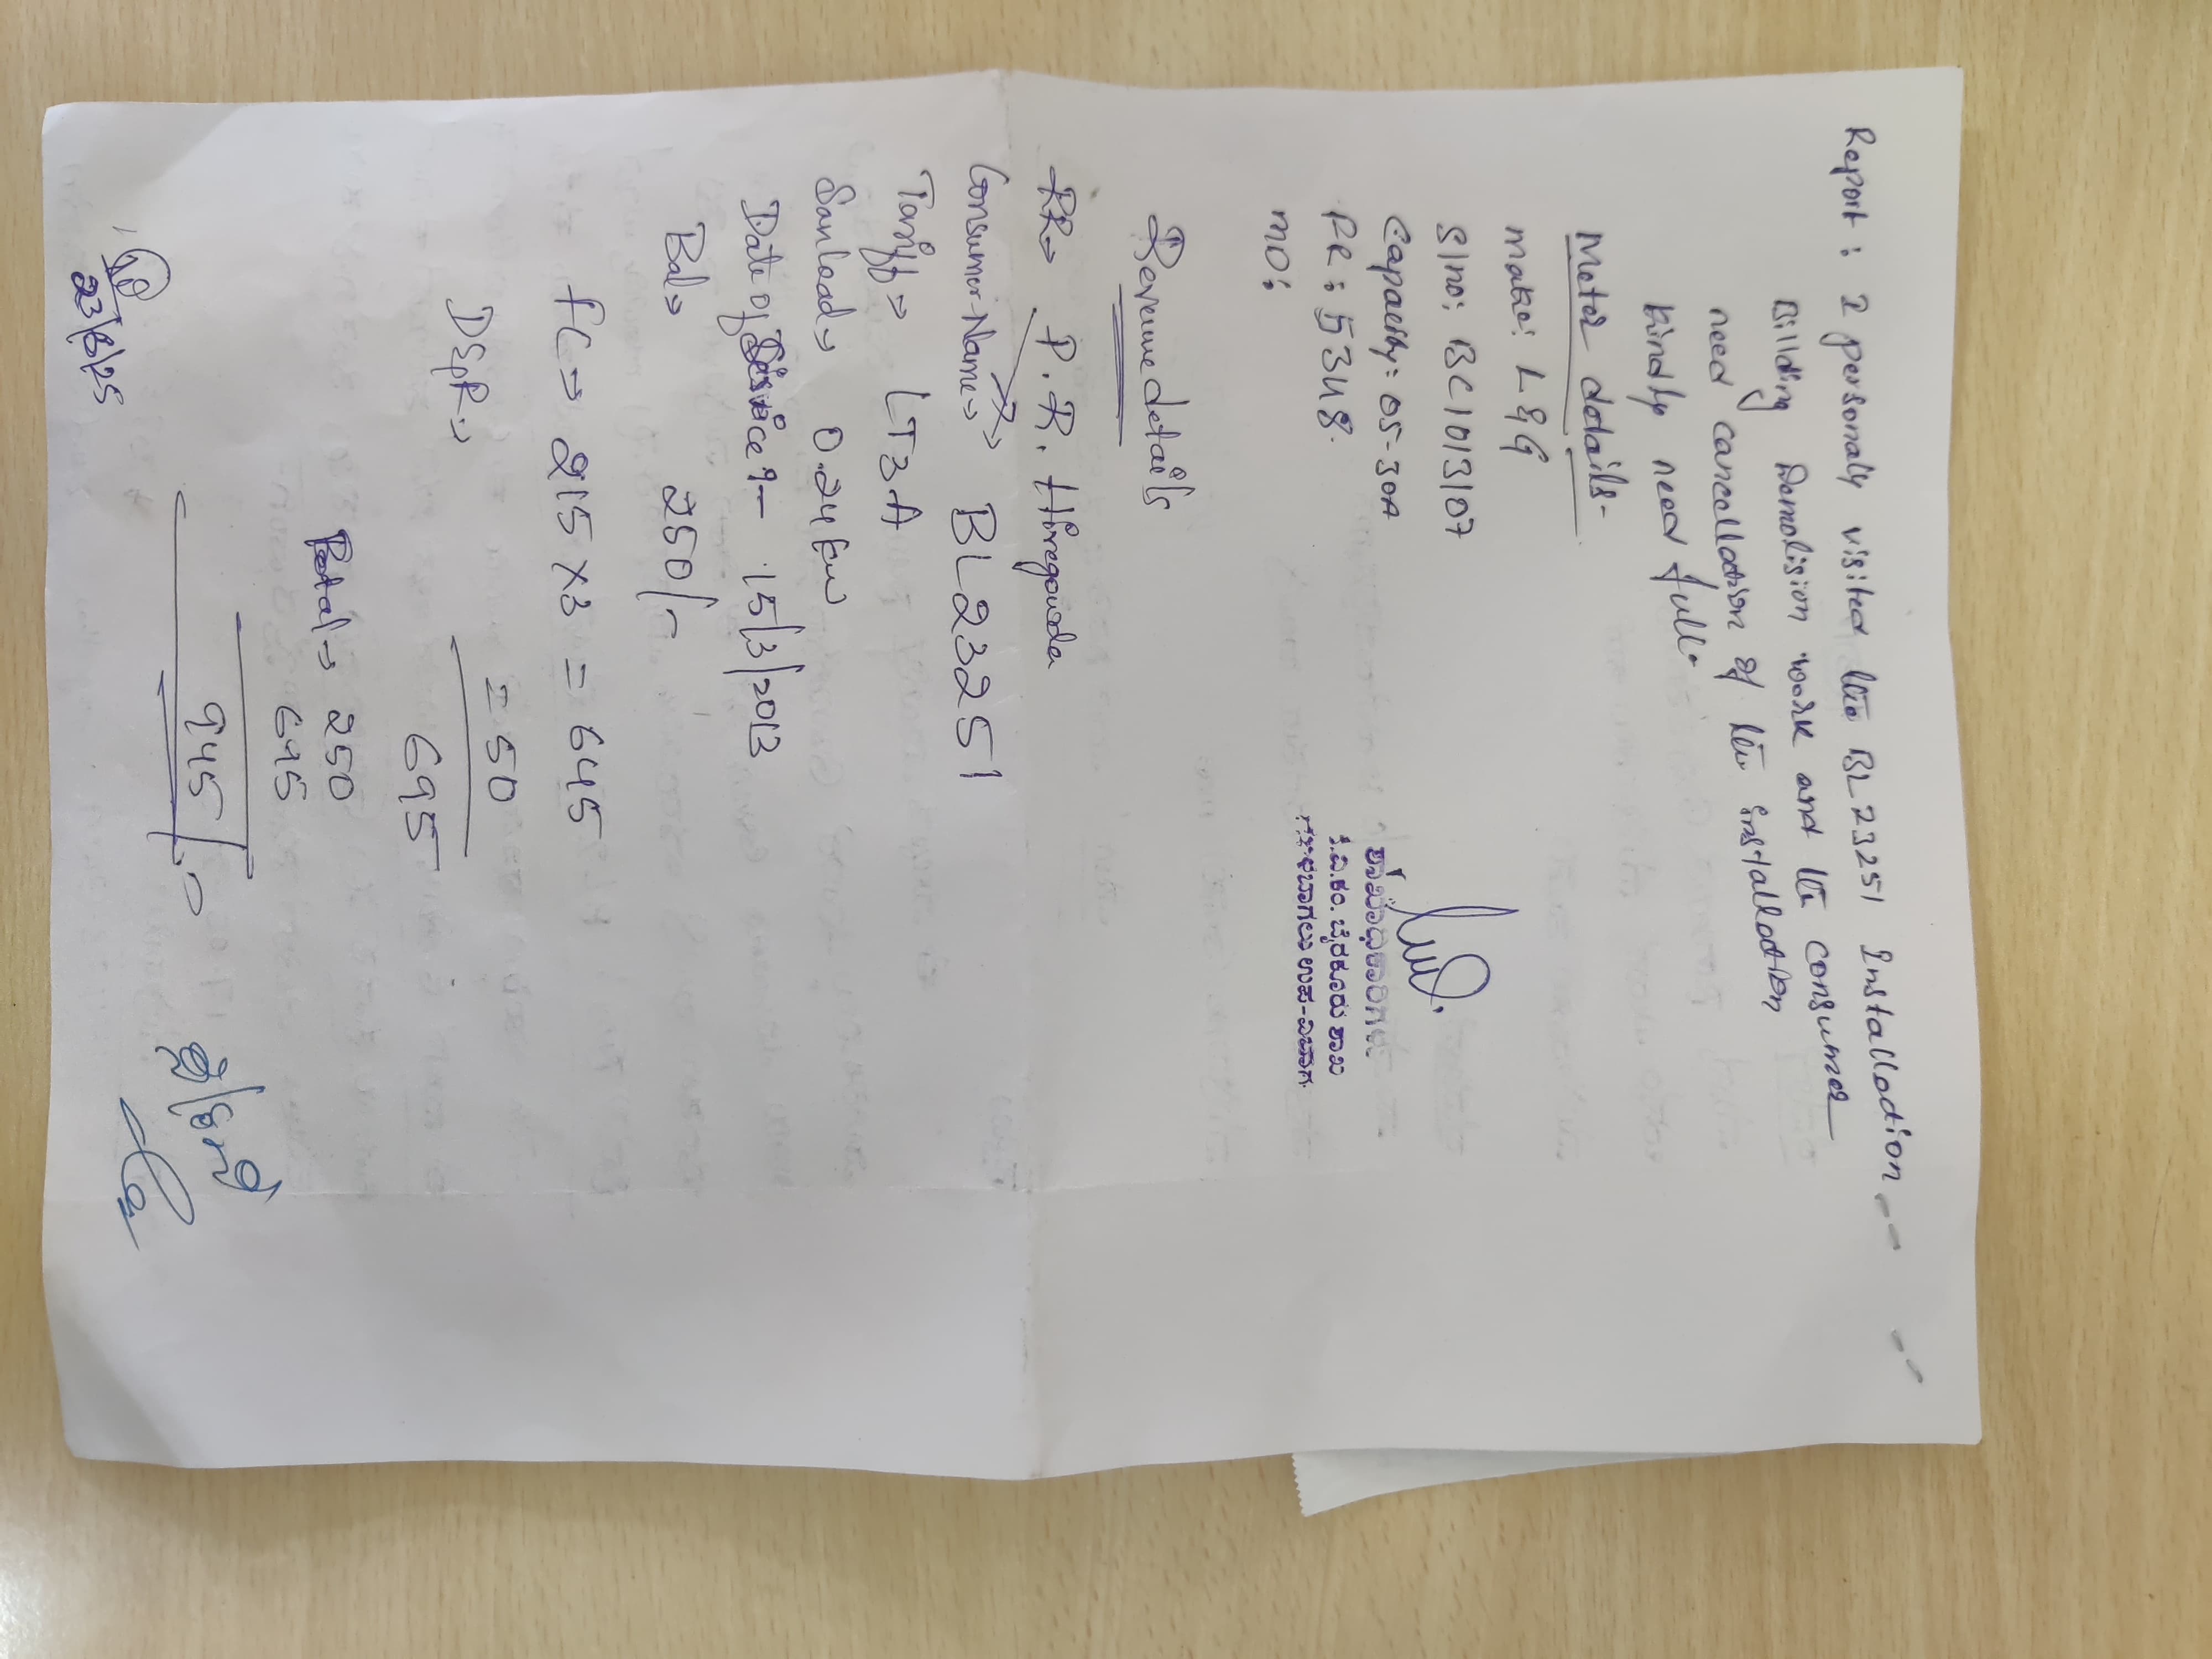 Report : I personally visited the BL 23251 Installation
Billding Domolision work and the consumer
need cancellation of the installation
kindly need full.
Meter dotails-
make: L&G
Slno: BC1013107
Capacity: 05-30A
FR: 5348.
MD:
ಶಾಖಾಧಿಕಾರಿಗಳು
ಉಪ-ವಿಭಾಗ.
Revenue details
RR→ P. R. Hiregouda
Consumer-Name→ BL23251
Tariff→ LT3A
Sanload→ 0.24kw
Date of Service :- 15/3/2013
Bal→ 250/-
FC→ 215 X 3 = 645
D&R→ = 50
695
Total→ 250
695
945/-
23/6/25